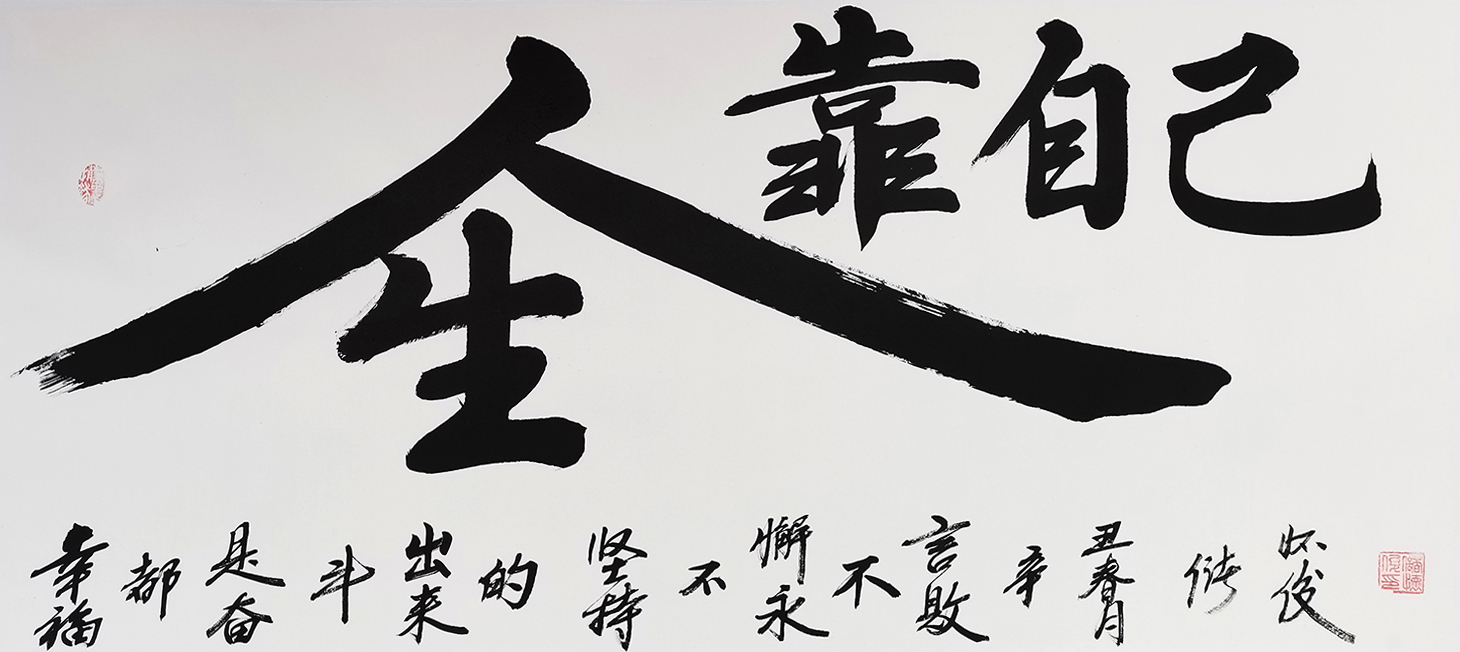 人生靠自己
幸福都是奋斗出来的坚持不懈永不言败辛丑春月储怀俊